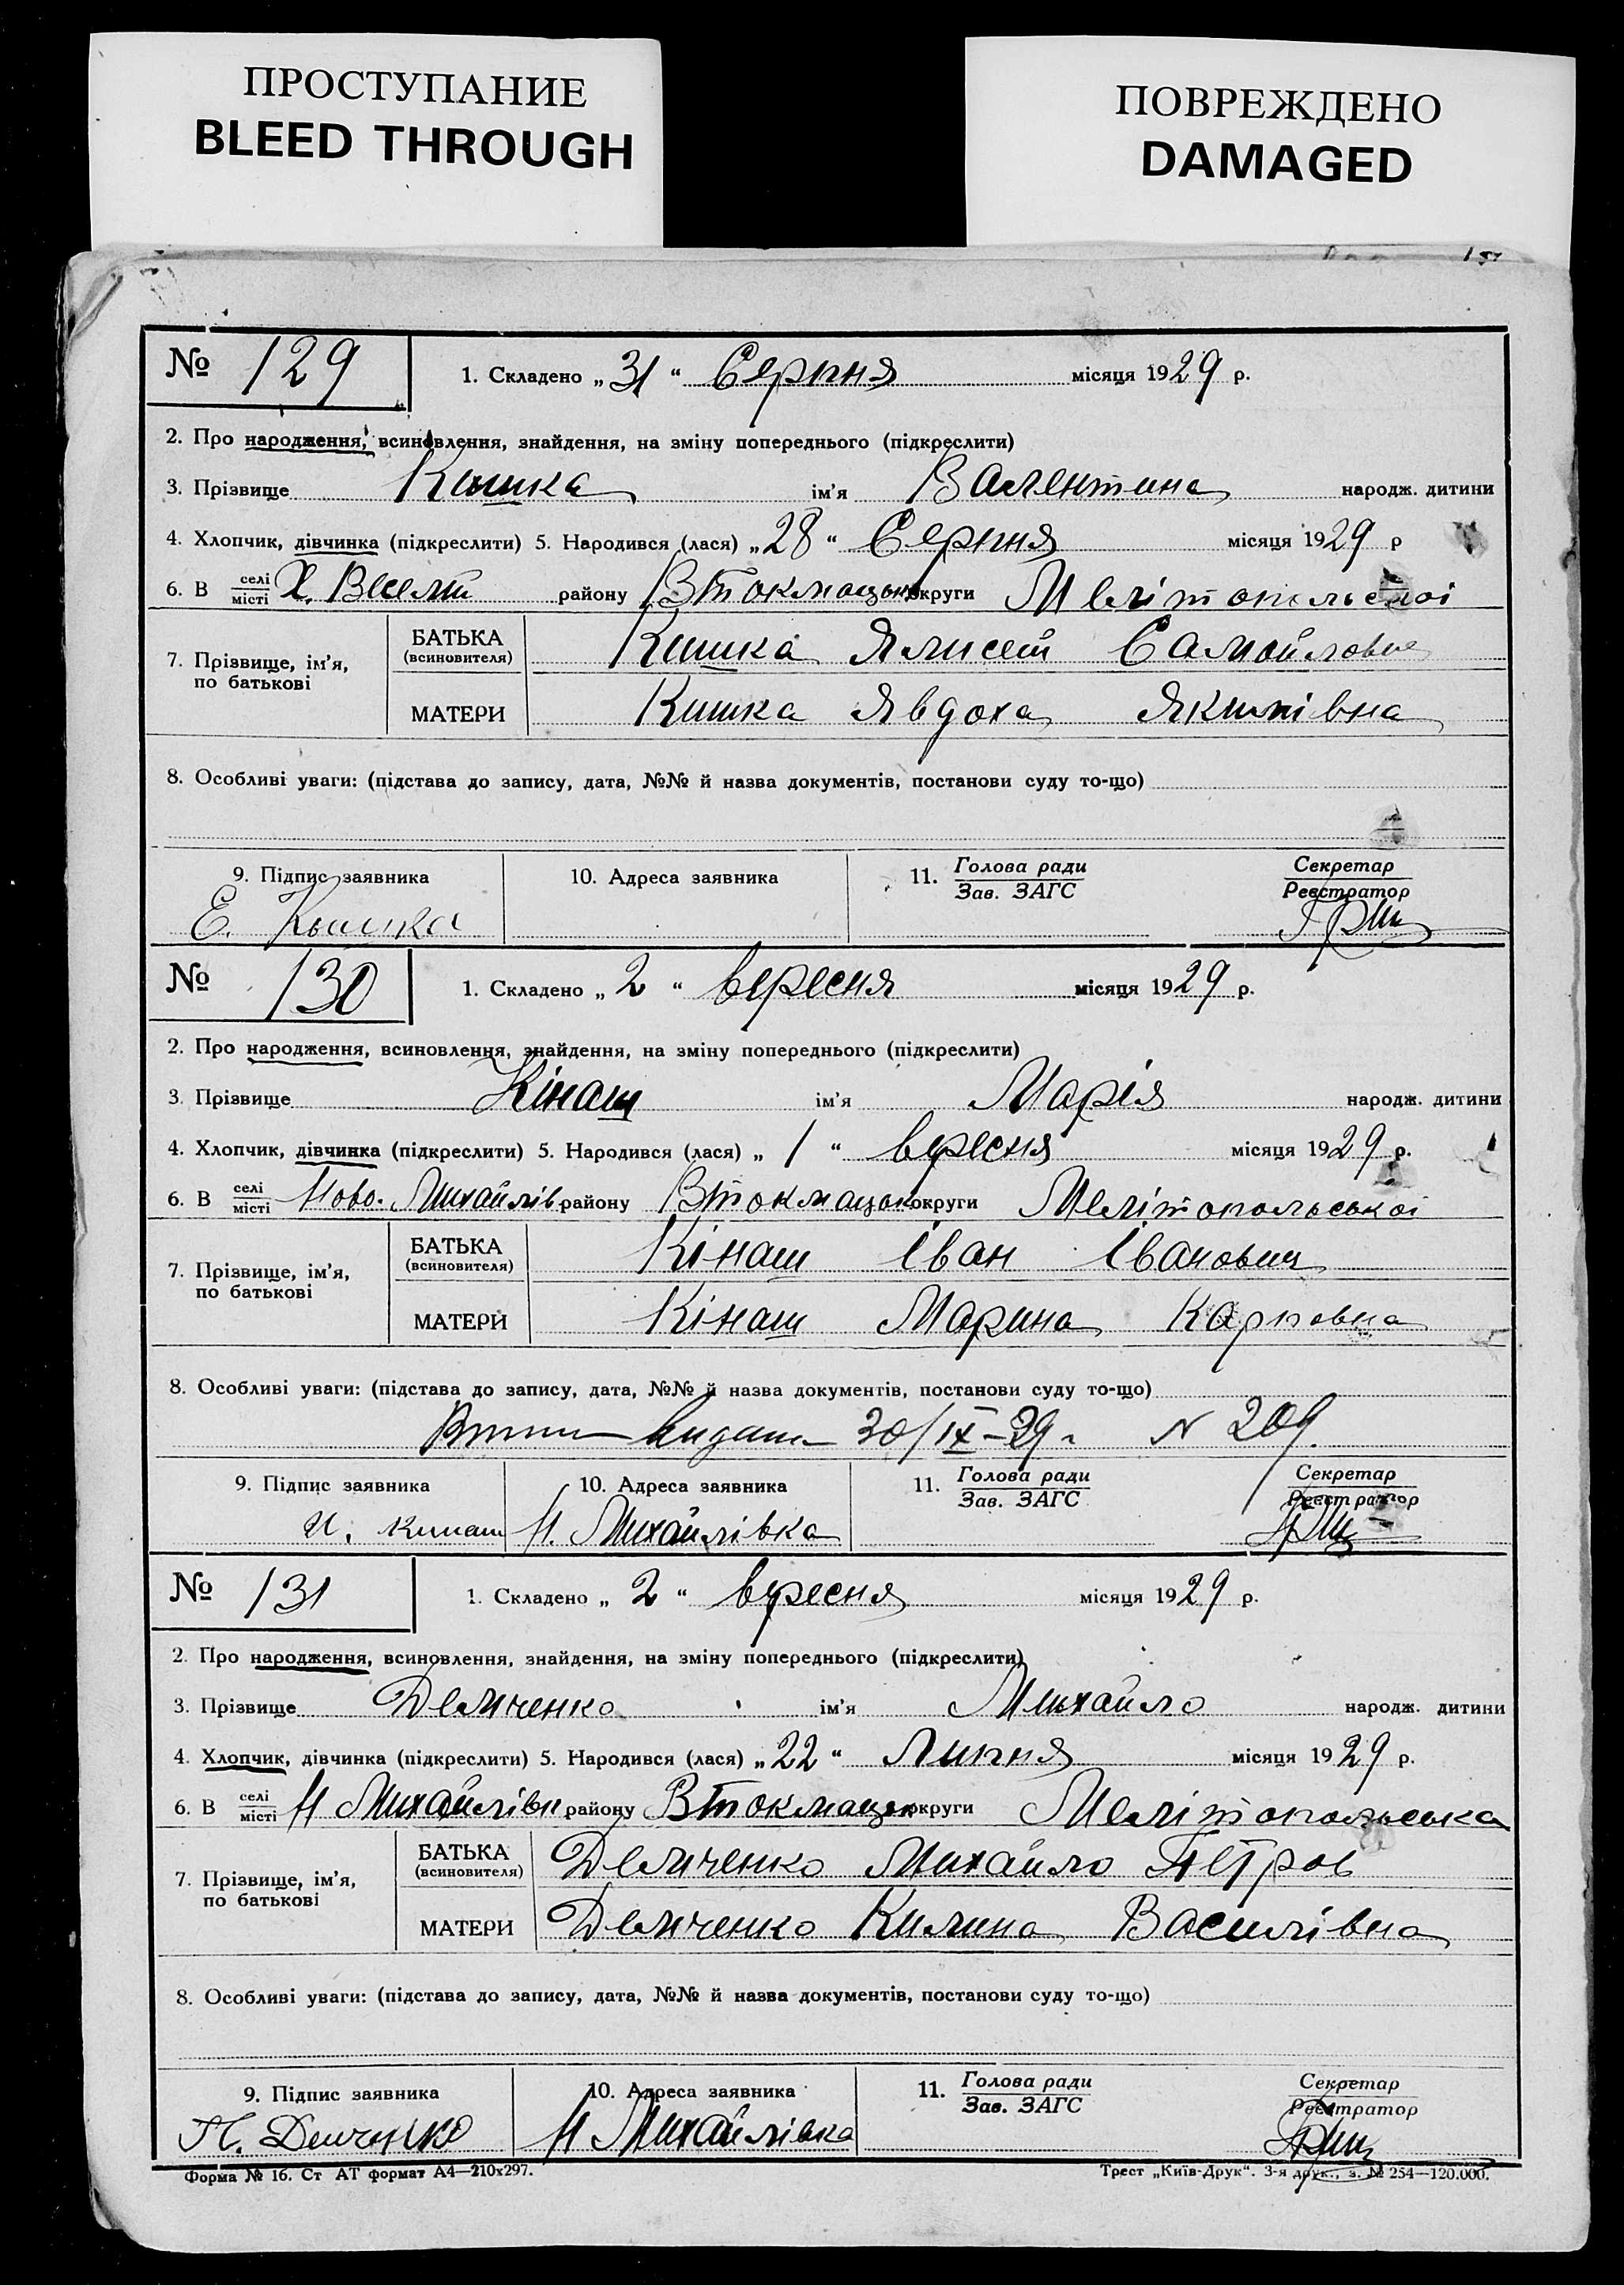 ПРОСТУПАНИЕ
BLEED THROUGH
ПОВРЕЖДЕНО
DAMAGED
№ 129
1. Складено „31“ Серпня місяця 1929 р.
2. Про народження, всиновлення, знайдення, на зміну попереднього (підкреслити)
3. Прізвище Кишка ім'я Валентина народж. дитини
4. Хлопчик, дівчинка (підкреслити) 5. Народився (лася) „28“ Серпня місяця 1929 р
6. В селі місті Х. Веселий району ВТокмацьк округи Мелітопольської
7. Прізвище, ім'я, по батькові
БАТЬКА (всиновителя) Кишка Ялисей Самойлович
МАТЕРИ Кишка Явдоха Якимівна
8. Особливі уваги: (підстава до запису, дата, №№ й назва документів, постанови суду то-що)
9. Підпис заявника
10. Адреса заявника
11. Голова ради Зав. ЗАГС
Секретар Реєстратор
Е. Кышка
№ 130
1. Складено „2“ вересня місяця 1929 р.
2. Про народження, всиновлення, знайдення, на зміну попереднього (підкреслити)
3. Прізвище Кінаш ім'я Марія народж. дитини
4. Хлопчик, дівчинка (підкреслити) 5. Народився (лася) „1“ вересня місяця 1929 р.
6. В селі місті Ново. Михайлів району ВТокмацьк округи Мелітопольської
7. Прізвище, ім'я, по батькові
БАТЬКА (всиновителя) Кінаш Іван Іванович
МАТЕРИ Кінаш Марина Карповна
8. Особливі уваги: (підстава до запису, дата, №№ й назва документів, постанови суду то-що)
30/IX-29 г N 209.
9. Підпис заявника
10. Адреса заявника
11. Голова ради Зав. ЗАГС
Секретар Реєстратор
И. Кинаш Н. Михайлівка
№ 131
1. Складено „2“ вересня місяця 1929 р.
2. Про народження, всиновлення, знайдення, на зміну попереднього (підкреслити)
3. Прізвище Демченко ім'я Михайло народж. дитини
4. Хлопчик, дівчинка (підкреслити) 5. Народився (лася) „22“ Липня місяця 1929 р.
6. В селі місті Н Михайлівк району ВТокмацьк округи Мелітопольська
7. Прізвище, ім'я, по батькові
БАТЬКА (всиновителя) Демченко Михайло Петров
МАТЕРИ Демченко Килина Василівна
8. Особливі уваги: (підстава до запису, дата, №№ й назва документів, постанови суду то-що)
9. Підпис заявника
10. Адреса заявника
11. Голова ради Зав. ЗАГС
Секретар Реєстратор
Демченко Н Михайлівка
Форма № 16. Ст АТ формат А4—210х297.
Трест „Київ-Друк“. 3-я друк., з. № 254—120.000.